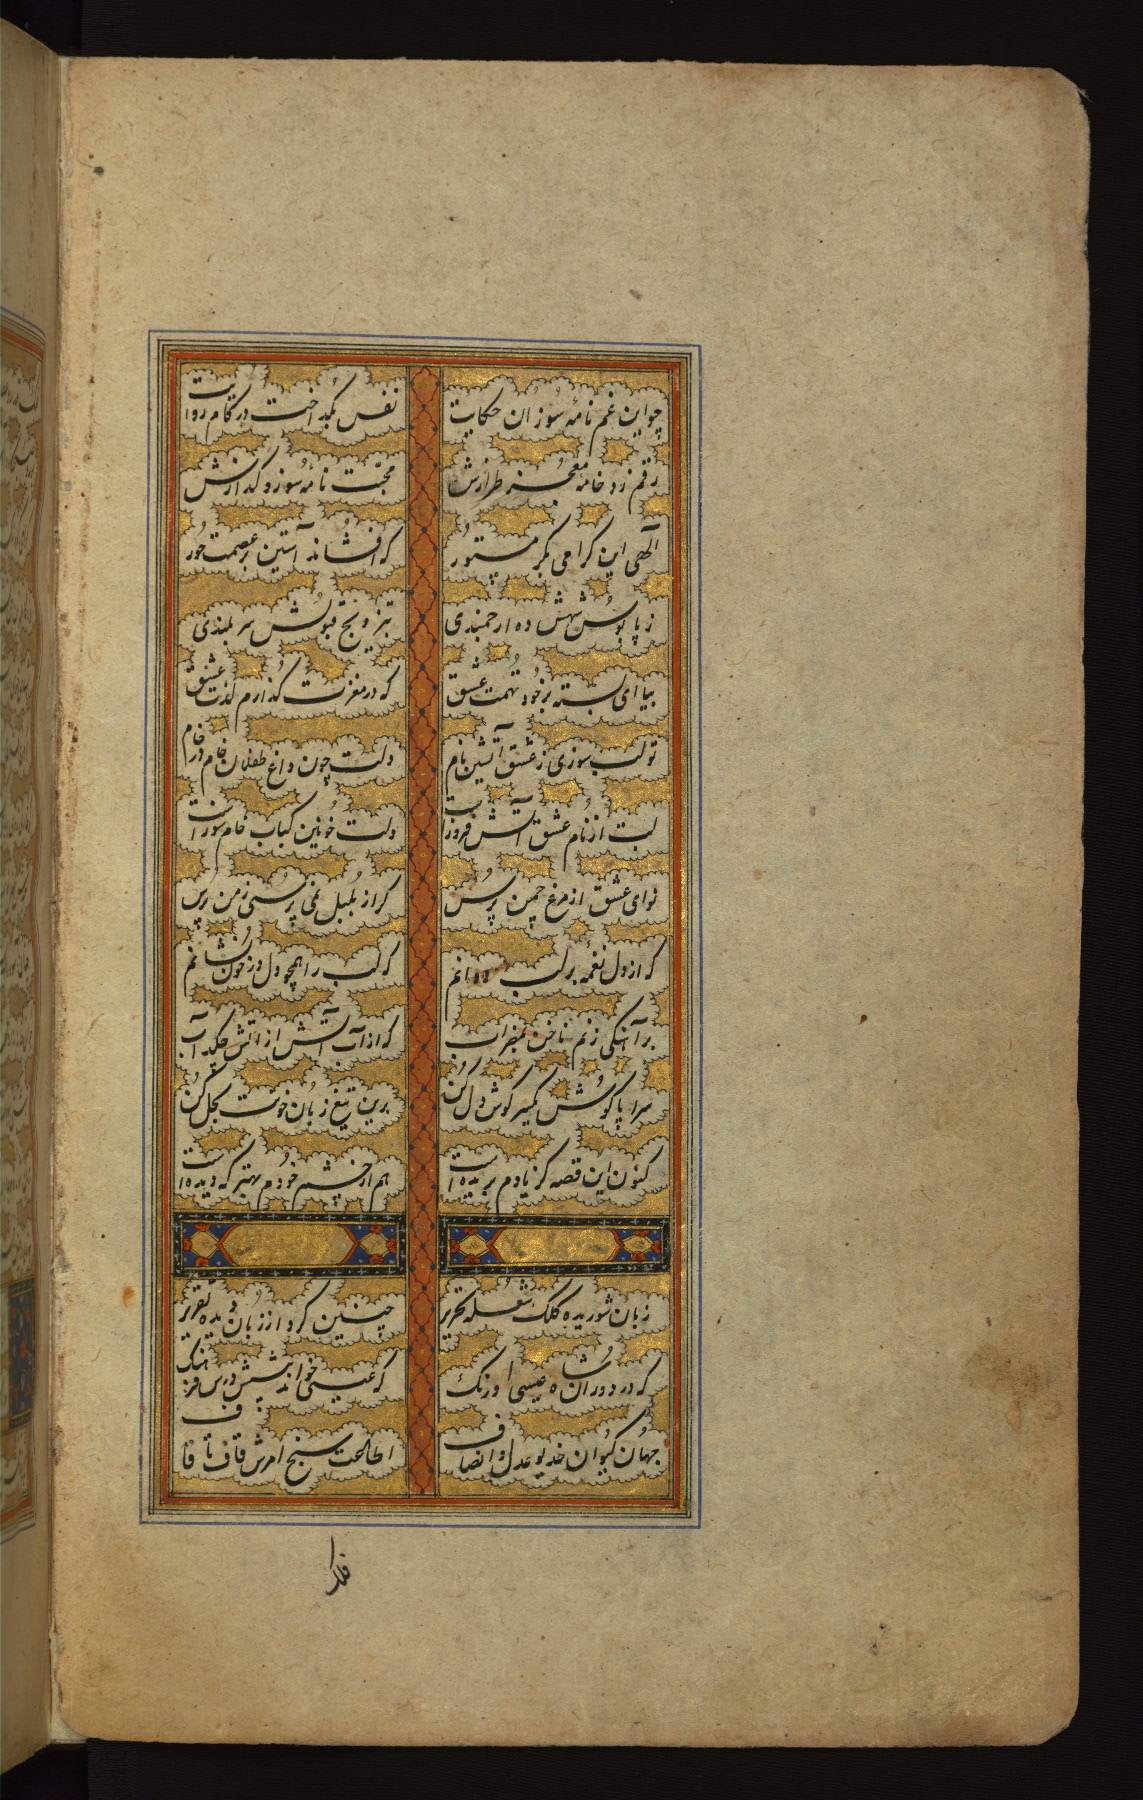 چو این غم نامهٔ سوزان حکایت نفس بگداخت در کام روایت
رقم زد خامهٔ معجز طرازش محبّت نامهٔ سوز و گدازش
الهی این گرامی بکر مستور که افشاند آستین بر عصمت حور
ز پابوس شهش ده ارجمندی بتزویج قبولش سربلندی
بیا ای بسته بر خود تهمت عشق که در مغزت گذارم لذت عشق
تو لب سوزی ز عشق آتشین نام دلت چون داغ طفلان خام در خام
لبت از نام عشق آتش فروزست دلت خونین کباب خام سوزست
نوای عشق از مرغ چمن پرس گر از بلبل نمی پرسی ز من پرس
که از دل نغمه بر لب رانم که لب را همچو دل در خون نشانم
بر آهنگی زنم ناخن بمضراب که از آب آتش از آتش چکد آب
سراپا گوش گیر گوش دل کن برین تیغ زبان خونت بحل کن
کنون این قصه کز یادم پریدست هم از چشم خودم بهتر که دیدست
زبان شوریده کلک شعله تحریر چنین کرد از زبان دیده تقریر
که در دوران شاه عیسی اورنگ که عیسی خواند پیشش درس فرهنگ
جهانبان کیوان خدیو عدل و انصاف اطاعت سنج امرش قاف تا قاف
فلک